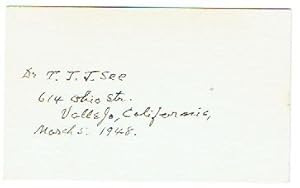 Dr T. J. J. See
614 Ohio Str.
Vallejo, California,
March 5. 1948.